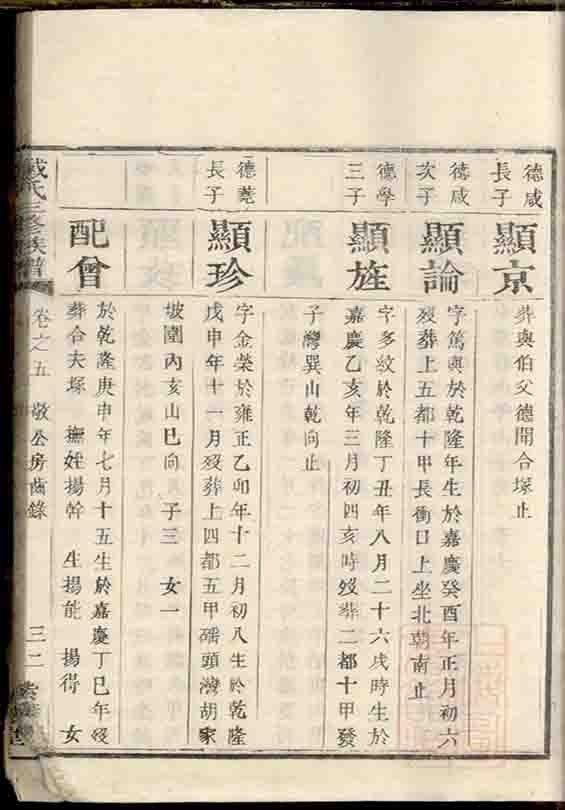 德咸
長子
顯京
葬與伯父德開合塚止
德咸
次子
顯論
字篤與於乾隆年生於嘉慶癸酉年正月初六
歿葬上五都十甲長衝口上坐北朝南止
德學
三子
顯旌
字多紋於乾隆丁丑年八月二十六戌時生於
嘉慶乙亥年三月初四亥時歿葬二都十甲發
子灣巽山乾向止
德蒐
長子
顯珍
字金榮於雍正乙卯年十二月初八生於乾隆
戊申年十一月歿葬上四都五甲礌頭灣胡家
坡圍內亥山巳向 子三 女一
配曾
於乾隆庚申年七月十五生於嘉慶丁巳年歿
葬合夫塚 撫姓揚幹 生揚能 揚得 女
戴氏三修族譜 卷之五 敬公房齒錄 三二